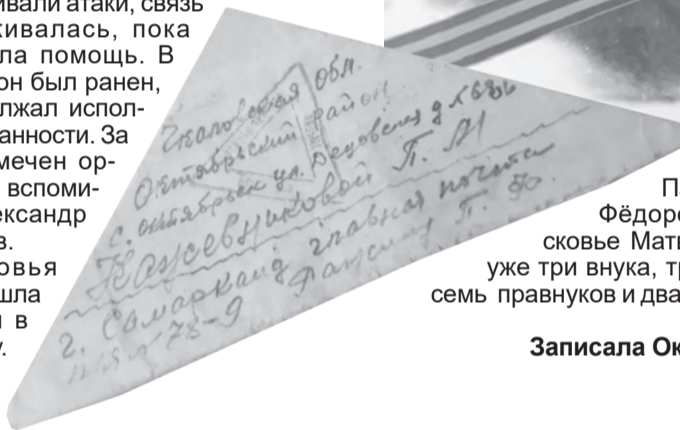 ивали атаки, связь
живалась, пока
ла помощь. В
он был ранен,
лжал испол-
анности. За
мечен ор-
вспоми-
ександр
в.
овья
шла
в
у.
Чкаловская обл.
Октябрьский район
с. Октябрьск ул.
Кажевниковой П. М
г. Самарканд главная почта
П. Ф.
п/я № 78-9
Фёдоро
сковье Матв
уже три внука, тр
семь правнуков и два
Записала Ок